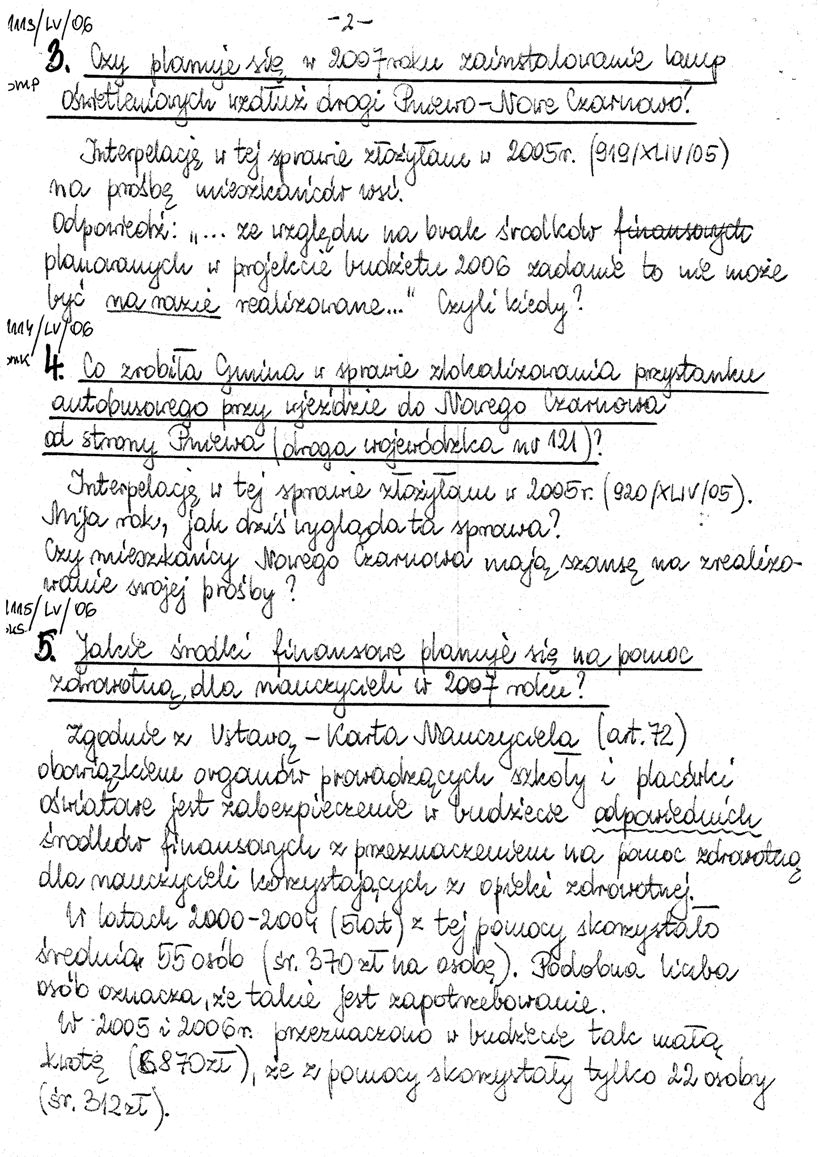 1113/LV/06
-2-
3. Czy planuje się w 2007 roku zainstalowanie lamp
oświetleniowych wzdłuż drogi Pniewo-Nowe Czarnowo?
Interpelację w tej sprawie złożyłam w 2005r. (919/XLIV/05)
na prośbę mieszkańców wsi.
Odpowiedź: „... ze względu na brak środków finansowych
planowanych w projekcie budżetu 2006 zadanie to nie może
być na razie realizowane..." Czyli kiedy?
1114/LV/06
4. Co zrobiła Gmina w sprawie zlokalizowania przystanku
autobusowego przy wjeździe do Nowego Czarnowa
od strony Pniewa (droga wojewódzka nr 121)?
Interpelację w tej sprawie złożyłam w 2005r. (920/XLIV/05).
Mija rok, jak dziś wygląda ta sprawa?
Czy mieszkańcy Nowego Czarnowa mają szansę na zrealizo-
wanie swojej prośby?
1115/LV/06
5. Jakie środki finansowe planuje się na pomoc
zdrowotną dla nauczycieli w 2007 roku?
Zgodnie z Ustawą - Karta Nauczyciela (art. 72)
obowiązkiem organów prowadzących szkoły i placówki
oświatowe jest zabezpieczenie w budżecie odpowiednich
środków finansowych z przeznaczeniem na pomoc zdrowotną
dla nauczycieli korzystających z opieki zdrowotnej.
W latach 2000-2004 (5 lat) z tej pomocy skorzystało
średnio 55 osób (śr. 370 zł na osobę). Podobna liczba
osób oznacza, że takie jest zapotrzebowanie.
W 2005 i 2006r. przeznaczono w budżecie tak małą
kwotę (6870zł), że z pomocy skorzystały tylko 22 osoby
(śr. 312 zł).